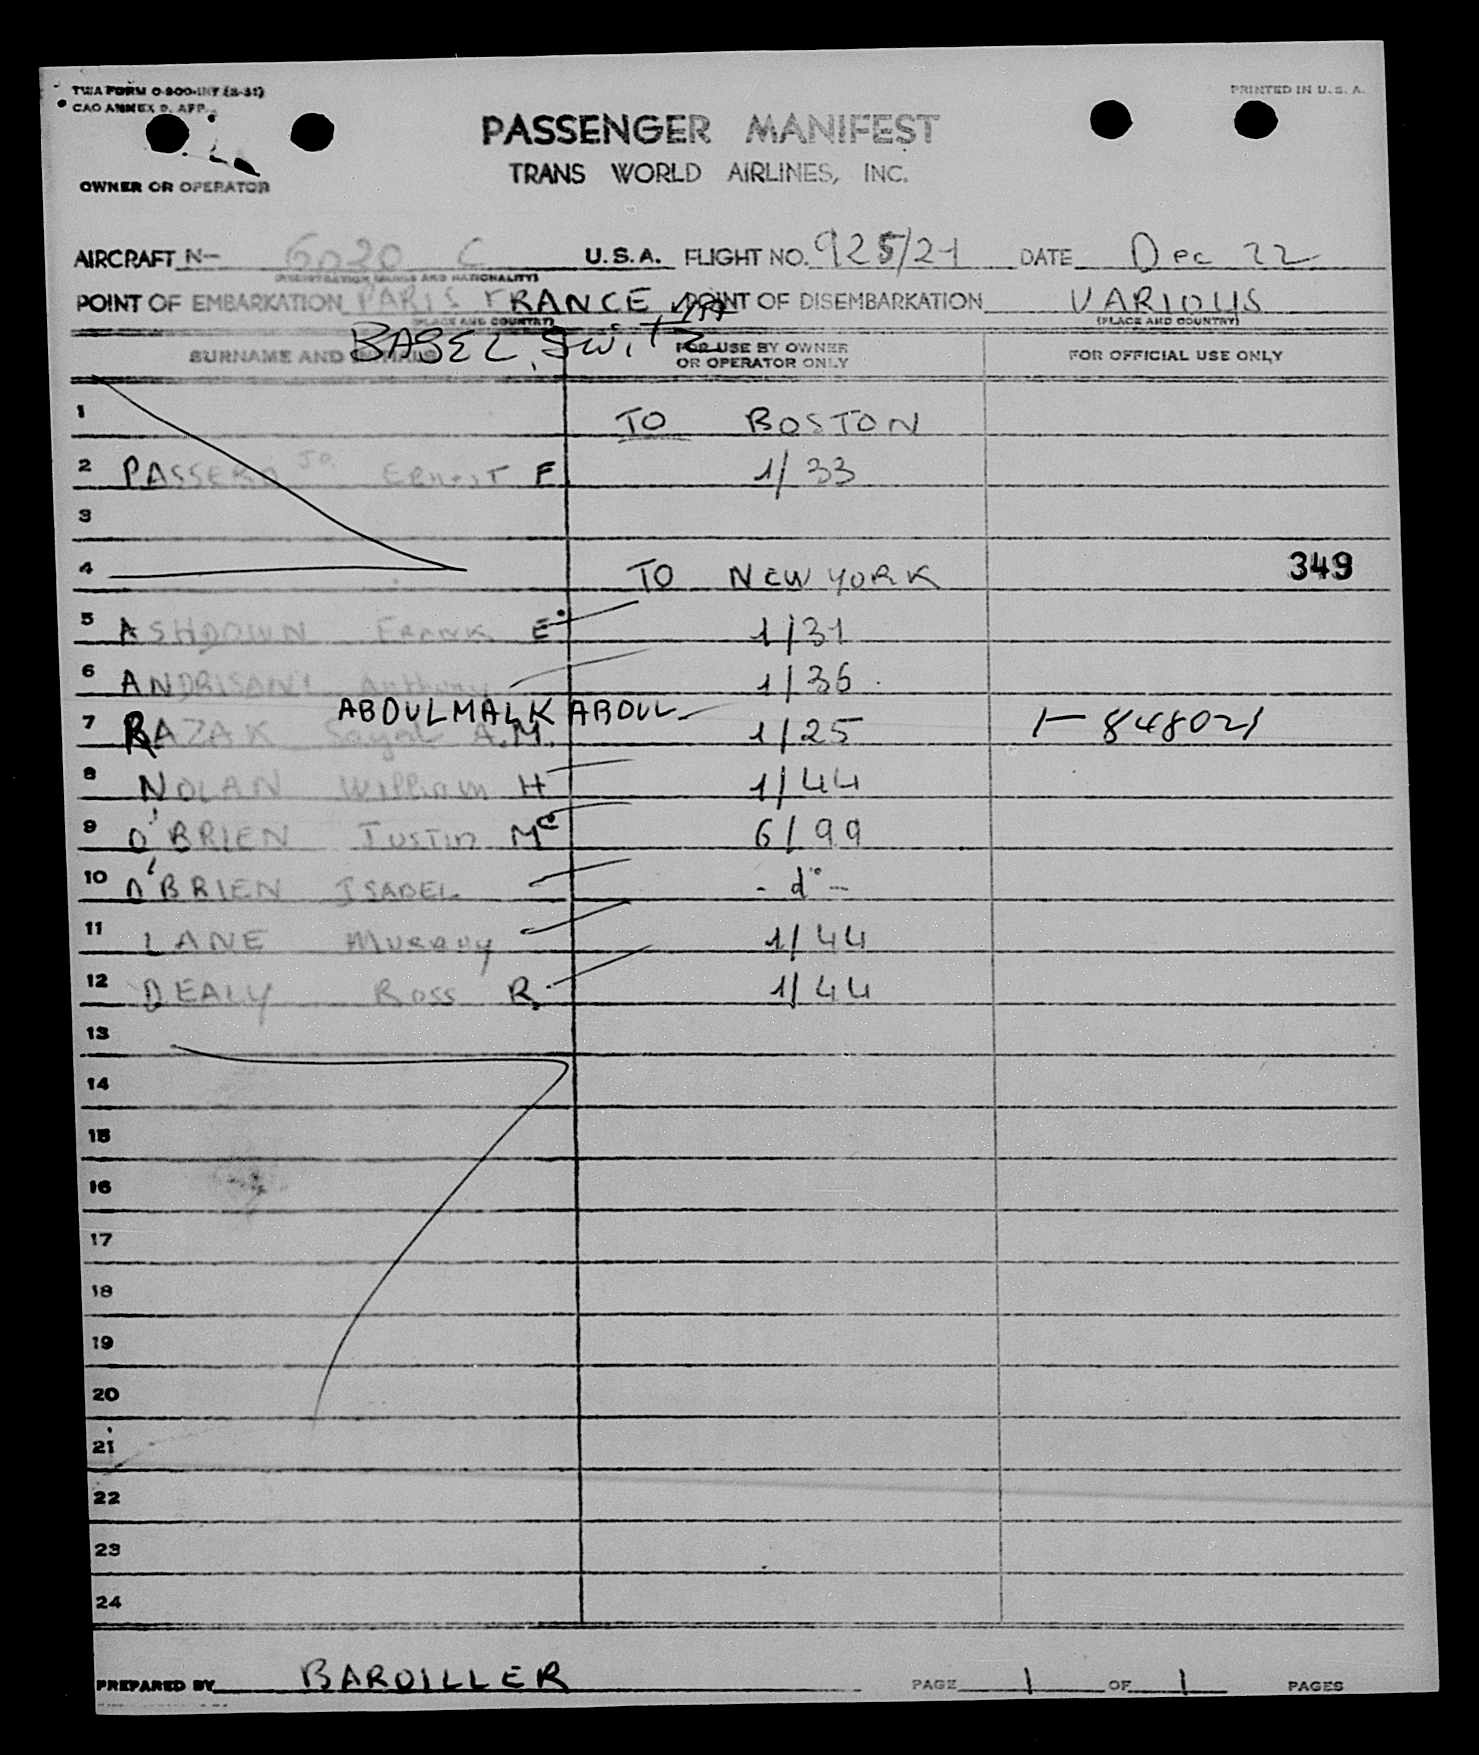 TWA FORM O-800-INT (8-51)
PRINTED IN U. S. A.
CAO ANNEX 9, APP.
PASSENGER MANIFEST
OWNER OR OPERATOR
TRANS WORLD AIRLINES, INC.
AIRCRAFT N- 6020 C U.S.A. FLIGHT NO. 925/21 DATE Dec 22
(REGISTRATION MARKS AND NATIONALITY)
POINT OF EMBARKATION PARIS FRANCE POINT OF DISEMBARKATION VARIOUS
(PLACE AND COUNTRY) (PLACE AND COUNTRY)
BASEL, Switz
SURNAME AND INITIALS FOR USE BY OWNER OR OPERATOR ONLY FOR OFFICIAL USE ONLY
1 TO BOSTON
2 PASSERO Jr. Ernest F 1/33
3
4 TO NEW YORK 349
5 ASHDOWN FRANK E 1/31
6 ANDRISANI Anthony 1/36
ABDULMALK ABDUL
7 RAZAK Sayal A.M. 1/25 1-848021
8 NOLAN William H 1/44
9 O'BRIEN JUSTIN Mc 6/99
10 O'BRIEN ISABEL - d° -
11 LANE Murray 1/44
12 DEALY Ross R. 1/44
13
14
15
16
17
18
19
20
21
22
23
24
PREPARED BY BARDILLER PAGE 1 OF 1 PAGES